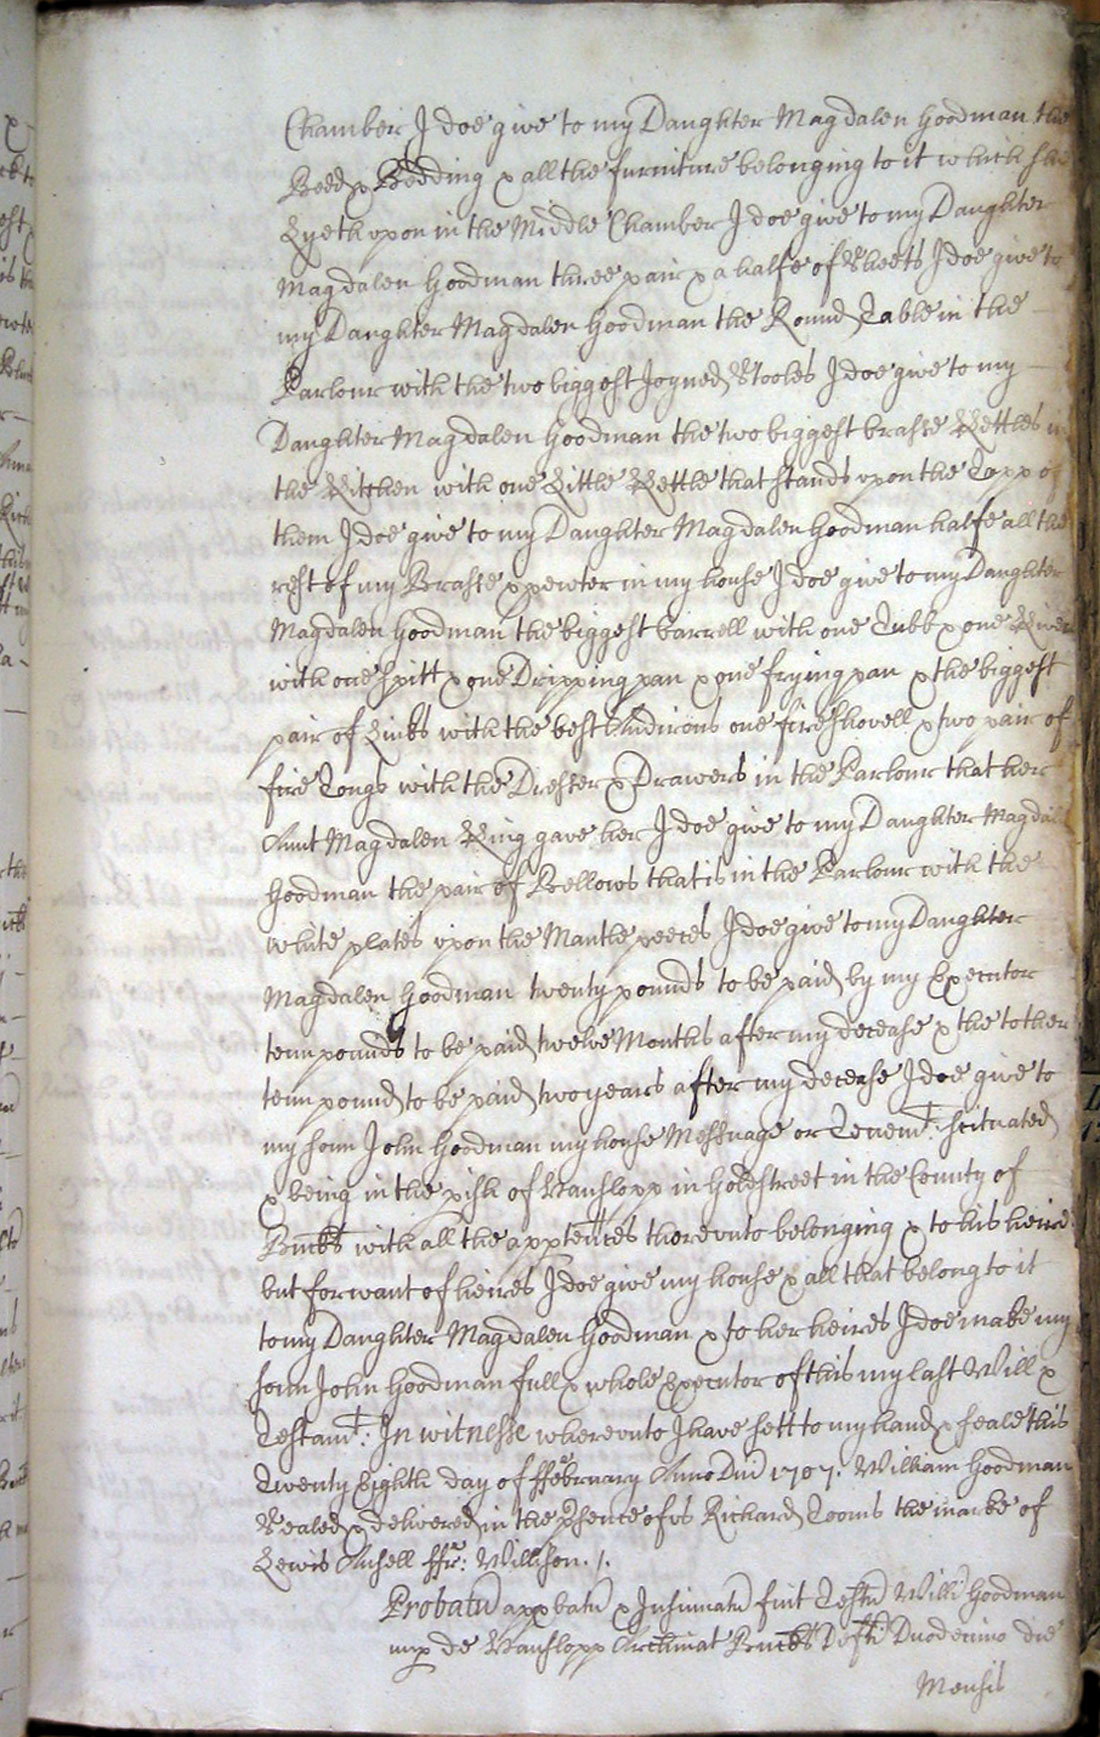 Chamber I doe give to my Daughter Magdalen Goodman the
Bedd & Bedding & all the furniture belonging to it which she
Lyeth upon in the Middle Chamber I doe give to my Daughter
Magdalen Goodman three pair & a halfe of Sheets I doe give to
my Daughter Magdalen Goodman the Round Table in the
Parlour with the two biggest Joyned Stooles I doe give to my
Daughter Magdalen Goodman the two biggest brasse Kettles in
the Kitchen with one Little Kettle that stands upon the Topp of
them I doe give to my Daughter Magdalen Goodman halfe all the
rest of my Brasse & pewter in my house I doe give to my Daughter
Magdalen Goodman the biggest barrell with one Tubb & one
with one Spitt & one Dripping pan & one frying pan & the biggest
pair of Links with the best Andirons one fire shovell & two pair of
fire Tongs with the Dresser & Drawers in the Parlour that her
Aunt Magdalen King gave her I doe give to my Daughter Magdalen
Goodman the pair of Bellows that is in the Parlour with the
white plates upon the Mantle peeces I doe give to my Daughter
Magdalen Goodman twenty pounds to be paid by my Executor
tenn pounds to be paid twelve Months after my decease & the tother
tenn pound to be paid two years after my decease I doe give to
my sonn John Goodman my house Messuage or Tenemt: scituated
& being in the pish of Hanslopp in Goldstreet in the County of
Bucks with all the apptences thereunto belonging & to his heires
but for want of heires I doe give my house & all that belong to it
to my Daughter Magdalen Goodman & to her heires I doe make my
sonn John Goodman full & whole Executor of this my last Will &
Testamt: In witnesse whereunto I have sett to my hand & seale this
Twenty Eighth day of ffebruary Anno Dni 1707. William Goodman
Sealed & delivered in the psence of us Richard Tooms the marke of
Lewis Ansell ffr: Willison. /.
Probatu appbatu & Insinuatu fuit Testu Willi Goodman
nup de Hanslopp Archinat Bucks Defti Duodecimo die
Mensis